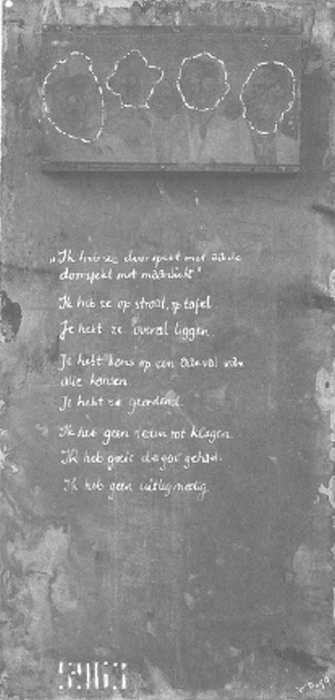 "Ik heb ze doorspekt met aarde
doorspekt met maanlicht"
Ik heb ze op straat, op tafel
Je hebt ze overal liggen.
Je hebt kans op een aanval van
alle kansen.
Je hebt ze geordend.
Ik heb geen reden tot klagen.
Ik heb goeie dagen gehad.
Ik heb geen uitleg nodig.